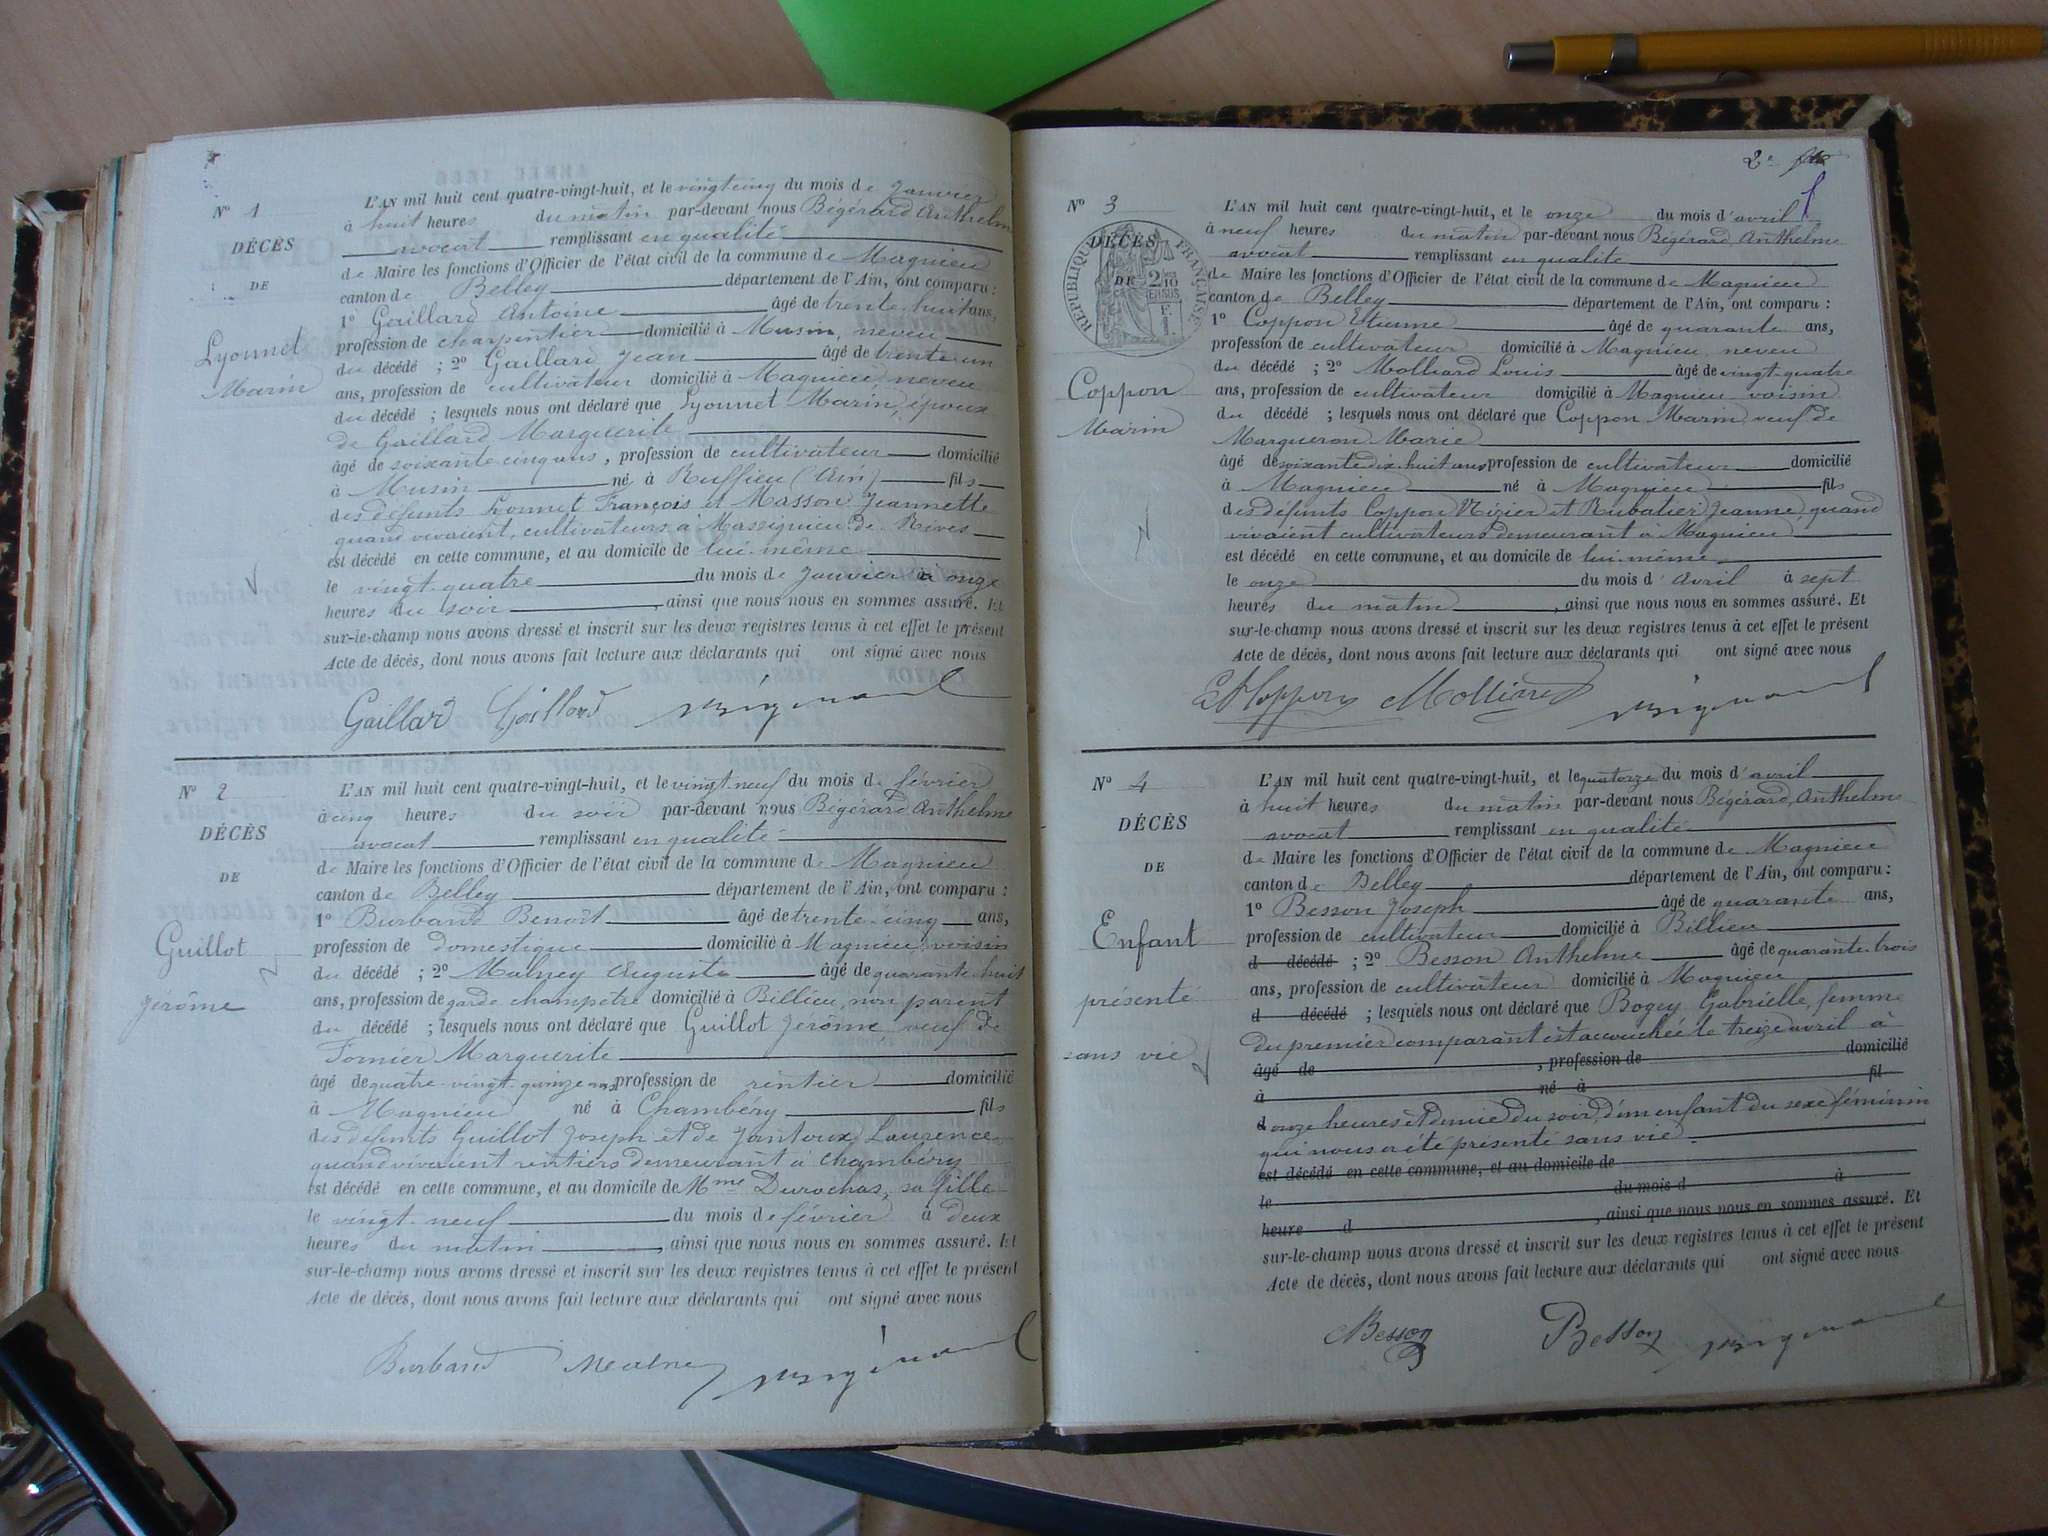 N° 1
DÉCÈS
DE
Lyonnet
Marin
L'AN mil huit cent quatre-vingt-huit, et le vingt cinq du mois de Janvier
à huit heures du matin par-devant nous Bégérard Anthelme
avocat remplissant en qualité
de Maire les fonctions d'Officier de l'état civil de la commune de Magnieu
canton de Belley département de l'Ain, ont comparu :
1° Gaillard Antoine âgé de trente huit ans,
profession de charpentier domicilié à Musin, neveu
du décédé ; 2° Gaillard Jean âgé de trente un
ans, profession de cultivateur domicilié à Magnieu, neveu
du décédé ; lesquels nous ont déclaré que Lyonnet Marin, époux
de Gaillard Marguerite
âgé de soixante cinq ans, profession de cultivateur domicilié
à Musin né à Ruffieu (Ain) fils
des défunts Lyonnet François et Masson Jeannette
quand vivaient, cultivateurs à Massignieu de Rives
est décédé en cette commune, et au domicile de lui-même
le vingt quatre du mois de Janvier à onze
heures du soir, ainsi que nous nous en sommes assuré. Et
sur-le-champ nous avons dressé et inscrit sur les deux registres tenus à cet effet le présent
Acte de décès, dont nous avons fait lecture aux déclarants qui ont signé avec nous
Gaillard Gaillard
N° 2
DÉCÈS
DE
Guillot
Jérôme
L'AN mil huit cent quatre-vingt-huit, et le vingt neuf du mois de février
à cinq heures du soir par-devant nous Bégérard Anthelme
avocat remplissant en qualité
de Maire les fonctions d'Officier de l'état civil de la commune de Magnieu
canton de Belley département de l'Ain, ont comparu :
1° Burbaud Benoît âgé de trente-cinq ans,
profession de domestique domicilié à Magnieu, voisin
du décédé ; 2° Malney Auguste âgé de quarante huit
ans, profession de garde champêtre domicilié à Billieu, non parent
du décédé ; lesquels nous ont déclaré que Guillot Jérôme veuf de
Fornier Marguerite
âgé de quatre-vingt quinze ans profession de rentier domicilié
à Magnieu né à Chambéry fils
des défunts Guillot Joseph et de Laurence
quand vivaient rentiers demeurant à Chambéry
est décédé en cette commune, et au domicile de Mme Durochas, sa fille
le vingt-neuf du mois de février à deux
heures du matin, ainsi que nous nous en sommes assuré. Et
sur-le-champ nous avons dressé et inscrit sur les deux registres tenus à cet effet le présent
Acte de décès, dont nous avons fait lecture aux déclarants qui ont signé avec nous
Burbaud Malney
2e
N° 3
DÉCÈS
DE
RÉPUBLIQUE FRANÇAISE
Coppon
Marin
L'AN mil huit cent quatre-vingt-huit, et le onze du mois d'avril
à neuf heures du matin par-devant nous Bégérard Anthelme
avocat remplissant en qualité
de Maire les fonctions d'Officier de l'état civil de la commune de Magnieu
canton de Belley département de l'Ain, ont comparu :
1° Coppon Etienne âgé de quarante ans,
profession de cultivateur domicilié à Magnieu neveu
du décédé ; 2° Molliard Louis âgé de vingt-quatre
ans, profession de cultivateur domicilié à Magnieu voisin
du décédé ; lesquels nous ont déclaré que Coppon Marin veuf de
Margueron Marie
âgé de soixante dix huit ans profession de cultivateur domicilié
à Magnieu né à Magnieu fils
des défunts Coppon Nizier et Rubatier Jeanne, quand
vivaient cultivateurs demeurant à Magnieu
est décédé en cette commune, et au domicile de lui-même
le onze du mois d'avril à sept
heures du matin, ainsi que nous nous en sommes assuré. Et
sur-le-champ nous avons dressé et inscrit sur les deux registres tenus à cet effet le présent
Acte de décès, dont nous avons fait lecture aux déclarants qui ont signé avec nous
Et Coppon Molliard
N° 4
DÉCÈS
DE
Enfant
présenté
sans vie
L'AN mil huit cent quatre-vingt-huit, et le quatorze du mois d'avril
à huit heures du matin par-devant nous Bégérard, Anthelme
avocat remplissant en qualité
de Maire les fonctions d'Officier de l'état civil de la commune de Magnieu
canton de Belley département de l'Ain, ont comparu :
1° Besson Joseph âgé de quarante ans,
profession de cultivateur domicilié à Billieu
d décédé ; 2° Besson Anthelme âgé de quarante trois
ans, profession de cultivateur domicilié à Magnieu
d décédé ; lesquels nous ont déclaré que Bogey Gabrielle, femme
du premier comparant est accouchée le treize avril à
âgé de , profession de domicilié
à né à fil
d onze heures et demie du soir, d'un enfant du sexe féminin
qui nous a été présenté sans vie.
est décédé en cette commune, et au domicile de
le du mois d à
heure d , ainsi que nous nous en sommes assuré. Et
sur-le-champ nous avons dressé et inscrit sur les deux registres tenus à cet effet le présent
Acte de décès, dont nous avons fait lecture aux déclarants qui ont signé avec nous
Besson Besson